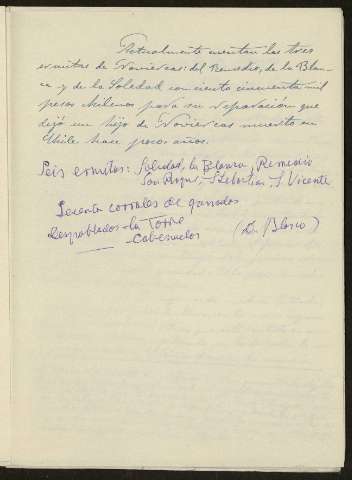 Actualmente cuentan las tres
ermitas de Noviercas: del Remedio, de la Blan-
ca y de la Soledad con ciento cincuenta mil
pesos chilenos para su reparación que
dejó un hijo de Noviercas muerto en
Chile hace pocos años.
Seis ermitas: Soledad, la Blanca, Remedio
San Roque, S. Sebastian, S. Vicente
Sesenta corrales de ganados
Despoblados - la Torre
- Cabezuelos
(D. Blasco)